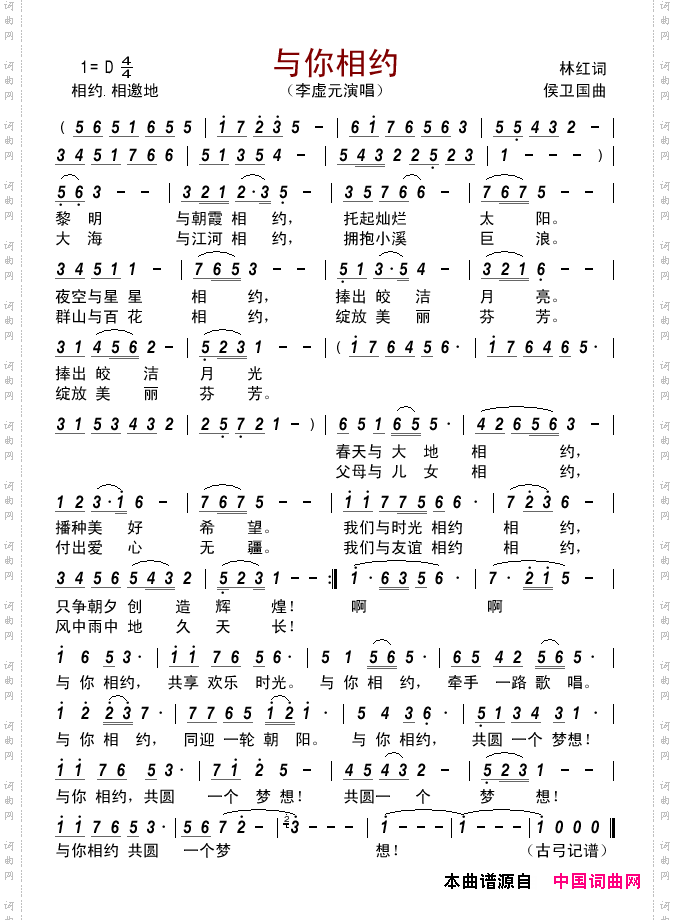 与你相约
1=D 4/4
林红词
相约.相邀地
（李虚元演唱）
侯卫国曲
( 5 6 5 1 6 5 5 | 1 7 2 3 5 - | 6 1 7 6 5 6 3 | 5 5 4 3 2 - |
3 4 5 1 7 6 6 | 5 1 3 5 4 - | 5 4 3 2 2 5 2 3 | 1 - - - )
5 6 3 - - | 3 2 1 2·3 5 - | 3 5 7 6 6 - | 7 6 7 5 - - |
黎 明 与朝霞 相 约， 托起灿烂 太 阳。
大 海 与江河 相 约， 拥抱小溪 巨 浪。
3 4 5 1 1 1 - | 7 6 5 3 - - | 5 1 3·5 4 - | 3 2 1 6 - - |
夜空与星 星 相 约， 捧出 皎 洁 月 亮。
群山与百 花 相 约， 绽放 美 丽 芬 芳。
3 1 4 5 6 2 - | 5 2 3 1 - - | ( 1 7 6 4 5 6· | 1 7 6 4 6 5· |
捧出 皎 洁 月 光
绽放 美 丽 芬 芳。
3 1 5 3 4 3 2 | 2 5 7 2 1 - ) | 6 5 1 6 5 5· | 4 2 6 5 6 3 - |
春天与 大 地 相 约，
父母与 儿 女 相 约，
1 2 3·1 6 - | 7 6 7 5 - | 1 1 7 7 5 6 6· | 7 2 3 6 - |
播种美 好 希 望。 我们与时光 相约 相 约，
付出爱 心 无 疆。 我们与友谊 相约 相 约，
3 4 4 5 6 5 4 3 2 | 5 2 3 1 - - :‖ 1·6 3 5 6· | 7· 2 1 5 - |
只争朝夕 创 造 辉 煌！ 啊 啊
风中雨中 地 久 天 长！
1 6 5 3· | 1 1 7 6 5 6· | 5 1 5 6 5· | 6 5 4 2 5 6 5· |
与 你 相约， 共享 欢乐 时光。 与 你 相 约， 牵手 一路 歌 唱。
1 2 2 3 7· | 7 7 6 5 1 2 1· | 5 4 3 6· | 5 1 3 4 3 1· |
与 你 相 约， 同迎 一轮 朝 阳。 与 你 相约， 共圆 一个 梦想！
1 1 7 6 5 3· | 7 1 2 5 - | 4 5 4 3 2 - | 5 2 3 1 - - |
与你 相约，共圆 一个 梦 想！ 共圆一 个 梦 想！
1 1 7 6 5 3· | 5 6 7 2 - | 3 - - - | 1 - - - | 1 - - - | 1 0 0 0 ‖
与你相约 共圆 一个梦 想！ （古弓记谱）
本曲谱源自 中国词曲网